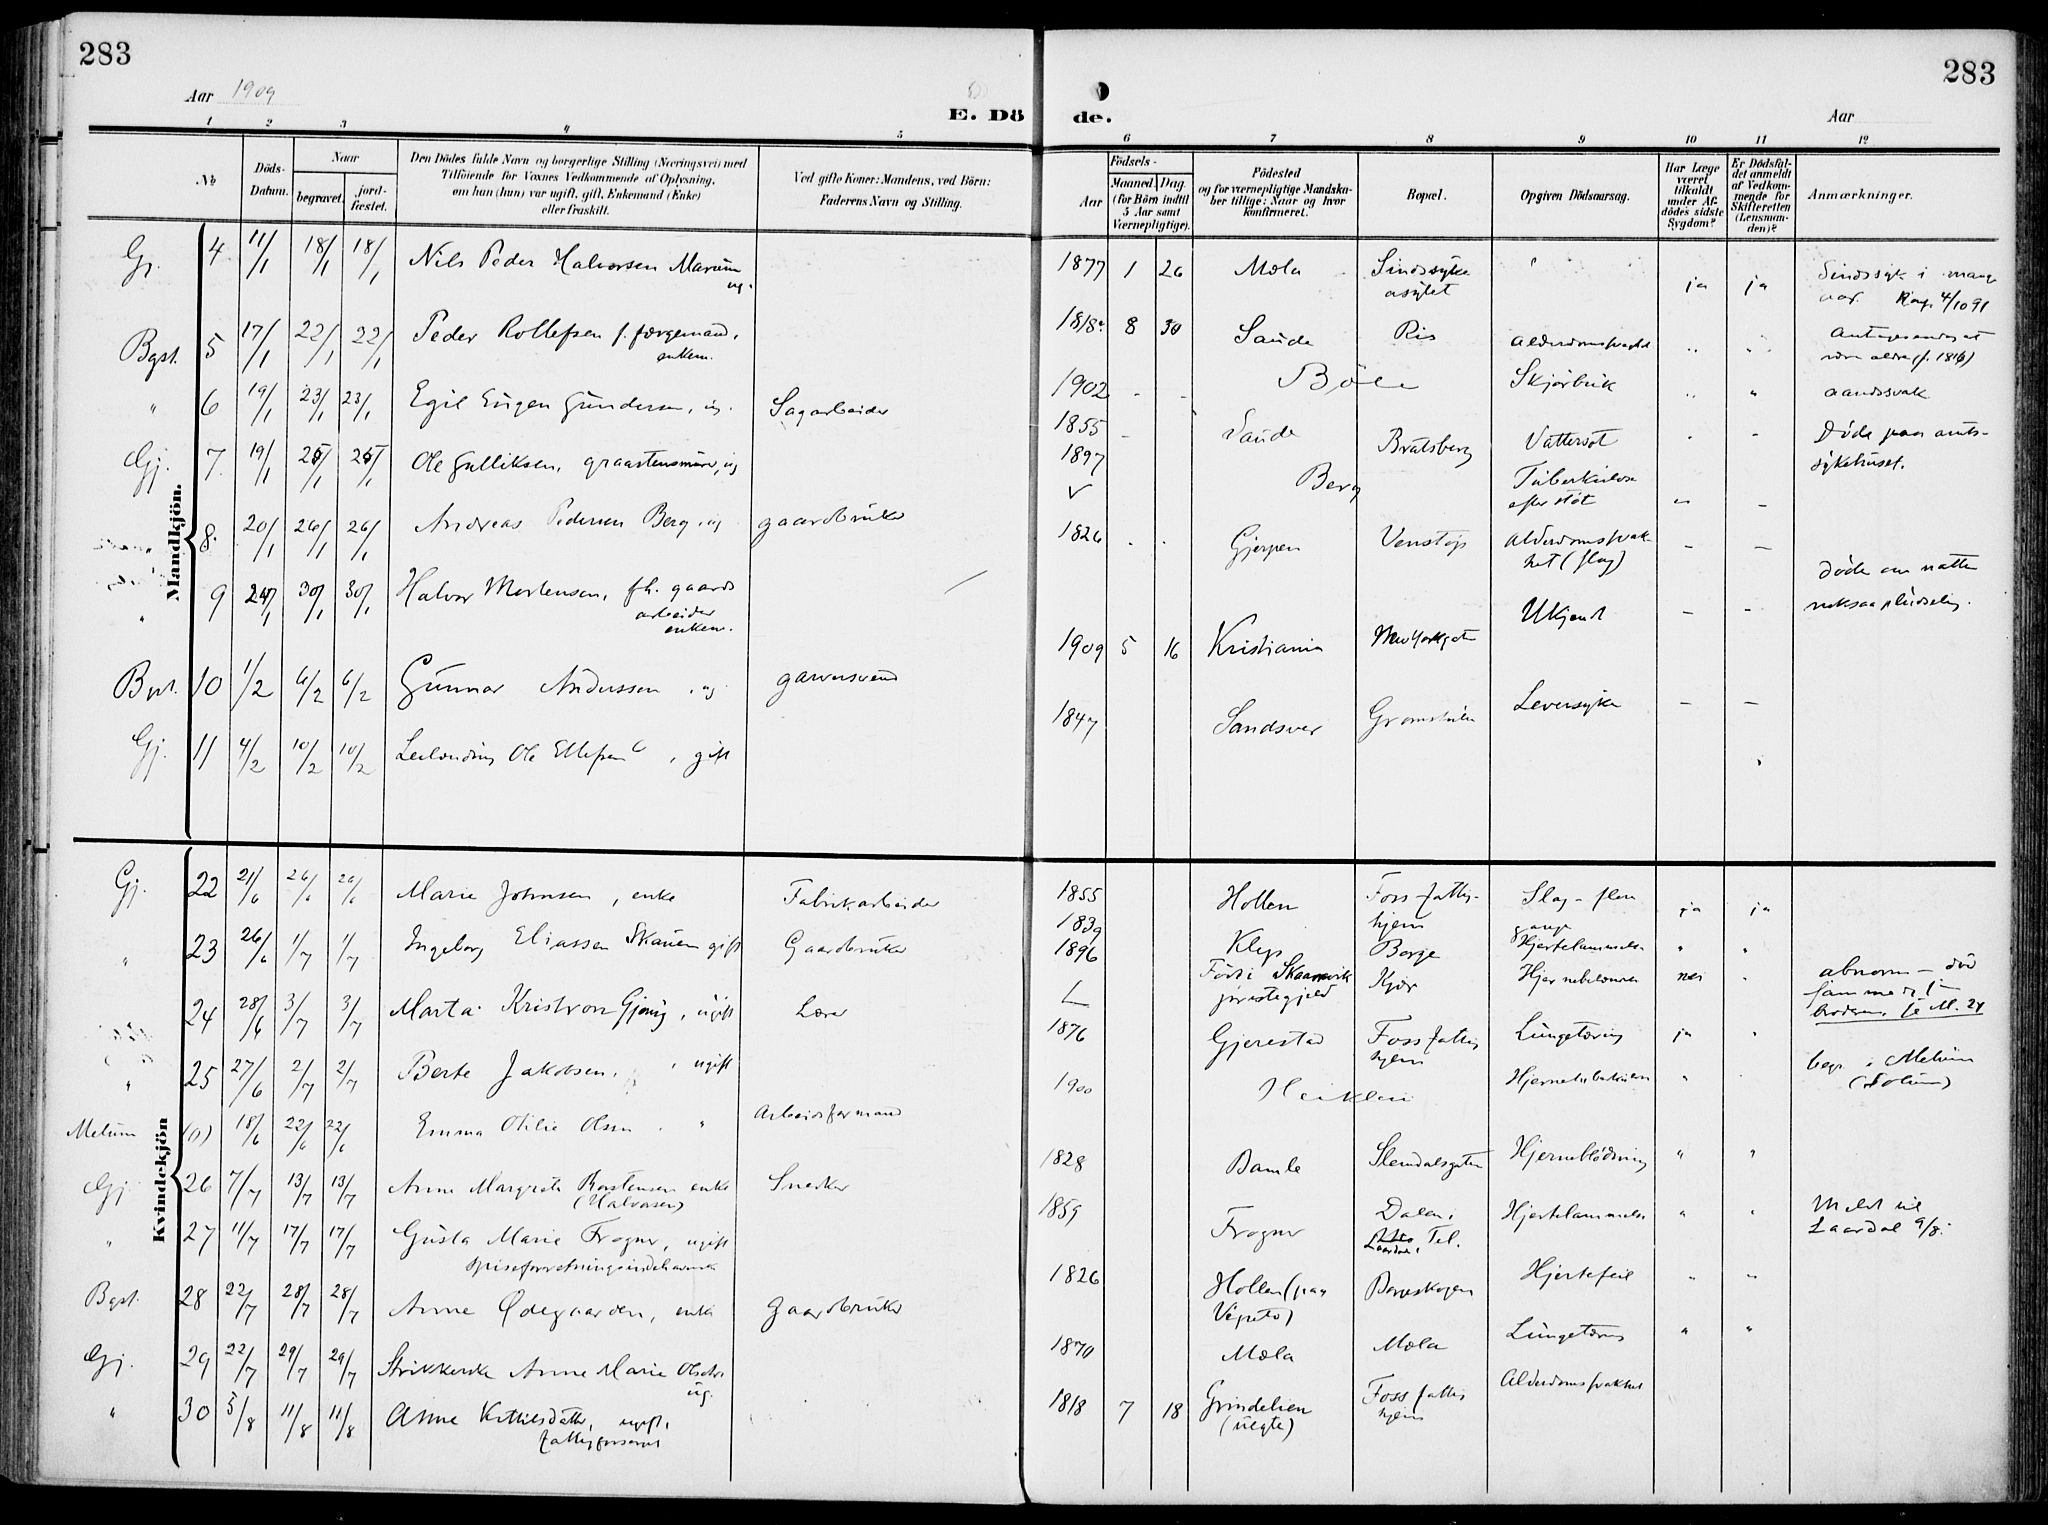 283
283
Aar 1909
E. Dö
de.
Aar
1 2 3 4 5 6 7 8 9 10 11 12
No
Döds-Datum.
Naar
begravet.
jord-fæstet.
Den Dödes fulde Navn og borgerlige Stilling (Næringsvei) med
Tilföiende for Voxnes Vedkommende af Oplysning,
om han (hun) var ugift, gift, Enkemand (Enke)
eller fraskilt.
Ved gifte Koner: Mandens, ved Börn:
Faderens Navn og Stilling.
Födsels-
Aar
Maaned. Dag.
(for Börn indtil
5 Aar samt
Værnepligtige).
Födested
og for værnepligtige Mandska-
ber tillige: Naar og hvor
konfirmeret.
Bopæl.
Opgiven Dödsaarsag.
Har Læge
været
tilkaldt
under Af-
dödes sidste
Sygdom?
Er Dödsfal-
det anmeldt
af Vedkom-
mende for
Skifteretten
(Lensman-
den)?
Anmærkninger.
Mandkjön.
Gj. 4 11/1 18/1 18/1 Nils Peder Halvorsen Marum ug. 1877 1 26 Mæla Sindssyke asylet ja ja Sindssyk i mange aar 4/10 91
Bgst. 5 17/1 22/1 22/1 Peder Rollefsen f. færgemand, enkem. 8 30 Saude Ris
" 6 19/1 23/1 23/1 Egil Eugen Gundersen, ug. Sagarbeider 1902 Böle Skjörbuk " aandssvak
Gj. 7 19/1 25/1 25/1 Ole Gulliksen, graastensmurer, ug 1855 Saude Bratsberg Vattersot Döde paa amts-sykehuset.
8 20/1 26/1 26/1 Andreas Pedersen Berg, ug gaardbruker 1897 Berg Tuberkulose efter stöt
" 9 24/1 30/1 30/1 Halvor Mortensen, fh. gaards arbeider enkem. 1826 Gjerpen Venstöp Alderdomssvak-het (slag) Döde om natten
Bgst. 10 1/2 6/2 6/2 Gunnar Anderssen, ug garversvend 1909 5 16 Kristiania Ukjendt
Gj. 11 4/2 10/2 10/2 Leilending Ole Ellefsen, gift 1847 Sandsver Leversyke
Kvindekjön
Gj. 22 21/6 26/6 26/6 Marie Johnsen, enke Fabrikarbeider 1855 Hollen Foss fattig-hjem Slag - flere gange ja ja
" 23 26/6 1/7 1/7 Ingeborg Eliassen Skauen gift Gaardbruker 1839 Klep Borge Hjertelammelse " "
24 28/6 3/7 3/7 Marta Gjönig, ugift Lærer 1896 Föd i Skaanevik prestegjeld Kjær nei
" 25 27/6 2/7 2/7 Berte Jakobsen, ugift 1876 Gjerestad Foss fattig hjem Lungetæring ja
Melum (0) 18/6 22/6 22/6 Emma Otilie Olsen " Arbeidsformand 1900 begr. i Melum (Solum)
Gj 26 7/7 13/7 13/7 Anne Margrete enke (Halvorsen) Snedker 1828 Bamle Hjerneblödning " "
" 27 11/7 17/7 17/7 Gusta Marie Frogner, ugift 1859 Frogner Dalen i Laardal, Tel. Hjertelammelse " Meldt til Laardal 9/8.
Bgst. 28 22/7 28/7 28/7 Anne Ødegaarden, enke gaardbruker 1826 Hollen Hjertefeil " "
Gj. 29 22/7 29/7 29/7 Strikkerske Anne Marie ug. 1870 Mæla Mæla Lungetæring " "
" 30 5/8 11/8 11/8 Anne Kittilsdatter, ugift, 1818 7 18 Grindelien (uegte) Foss fattig hjem Alderdomssvakhet